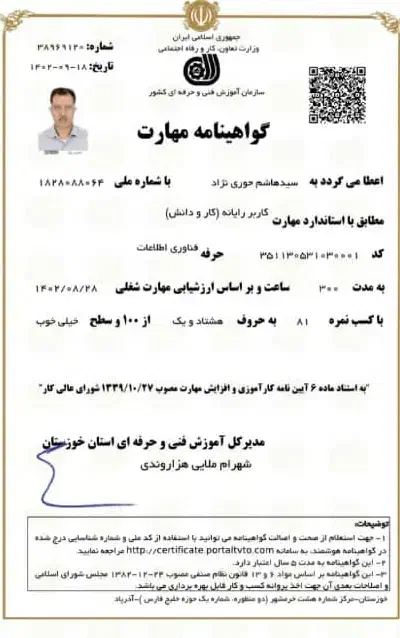 جمهوری اسلامی ایران
وزارت تعاون، کار و رفاه اجتماعی
شماره: ۳۸۹۶۹۱۲۰
تاریخ: ۱۴۰۲-۰۹-۱۸
سازمان آموزش فنی و حرفه ای کشور
گواهینامه مهارت
اعطا می گردد به سیدهاشم حوری نژاد با شماره ملی ۱۸۲۸۰۸۸۰۶۴
مطابق با استاندارد مهارت کاربر رایانه (کار و دانش)
کد ۳۵۱۱۳۰۵۳۱۰۳۰۰۰۱ حرفه فناوری اطلاعات
به مدت ۳۰۰ ساعت و بر اساس ارزشیابی مهارت شغلی ۱۴۰۲/۰۸/۲۸
با کسب نمره ۸۱ به حروف هشتاد و یک از ۱۰۰ و سطح خیلی خوب
"به استناد ماده ۶ آیین نامه کارآموزی و افزایش مهارت مصوب ۱۳۳۹/۱۰/۲۷ شورای عالی کار"
مدیرکل آموزش فنی و حرفه ای استان خوزستان
شهرام ملایی هزاروندی
توضیحات:
۱- جهت استعلام از صحت و اصالت گواهینامه می توانید با استفاده از کد ملی و شماره شناسایی درج شده
در گواهینامه هوشمند، به سامانه http://certificate.portaltvto.com مراجعه نمایید.
۲- این گواهینامه به مدت ۵ سال اعتبار دارد.
۳- این گواهینامه بر اساس مواد ۶ و ۱۳ قانون نظام صنفی مصوب ۲۴-۱۲-۱۳۸۲ مجلس شورای اسلامی
و اصلاحات بعدی آن جهت اخذ پروانه کسب و کار قابل بهره برداری می باشد.
خوزستان-مرکز شماره هشت خرمشهر (دو منظوره، شماره یک حوزه خلیج فارس )-آذرپاد